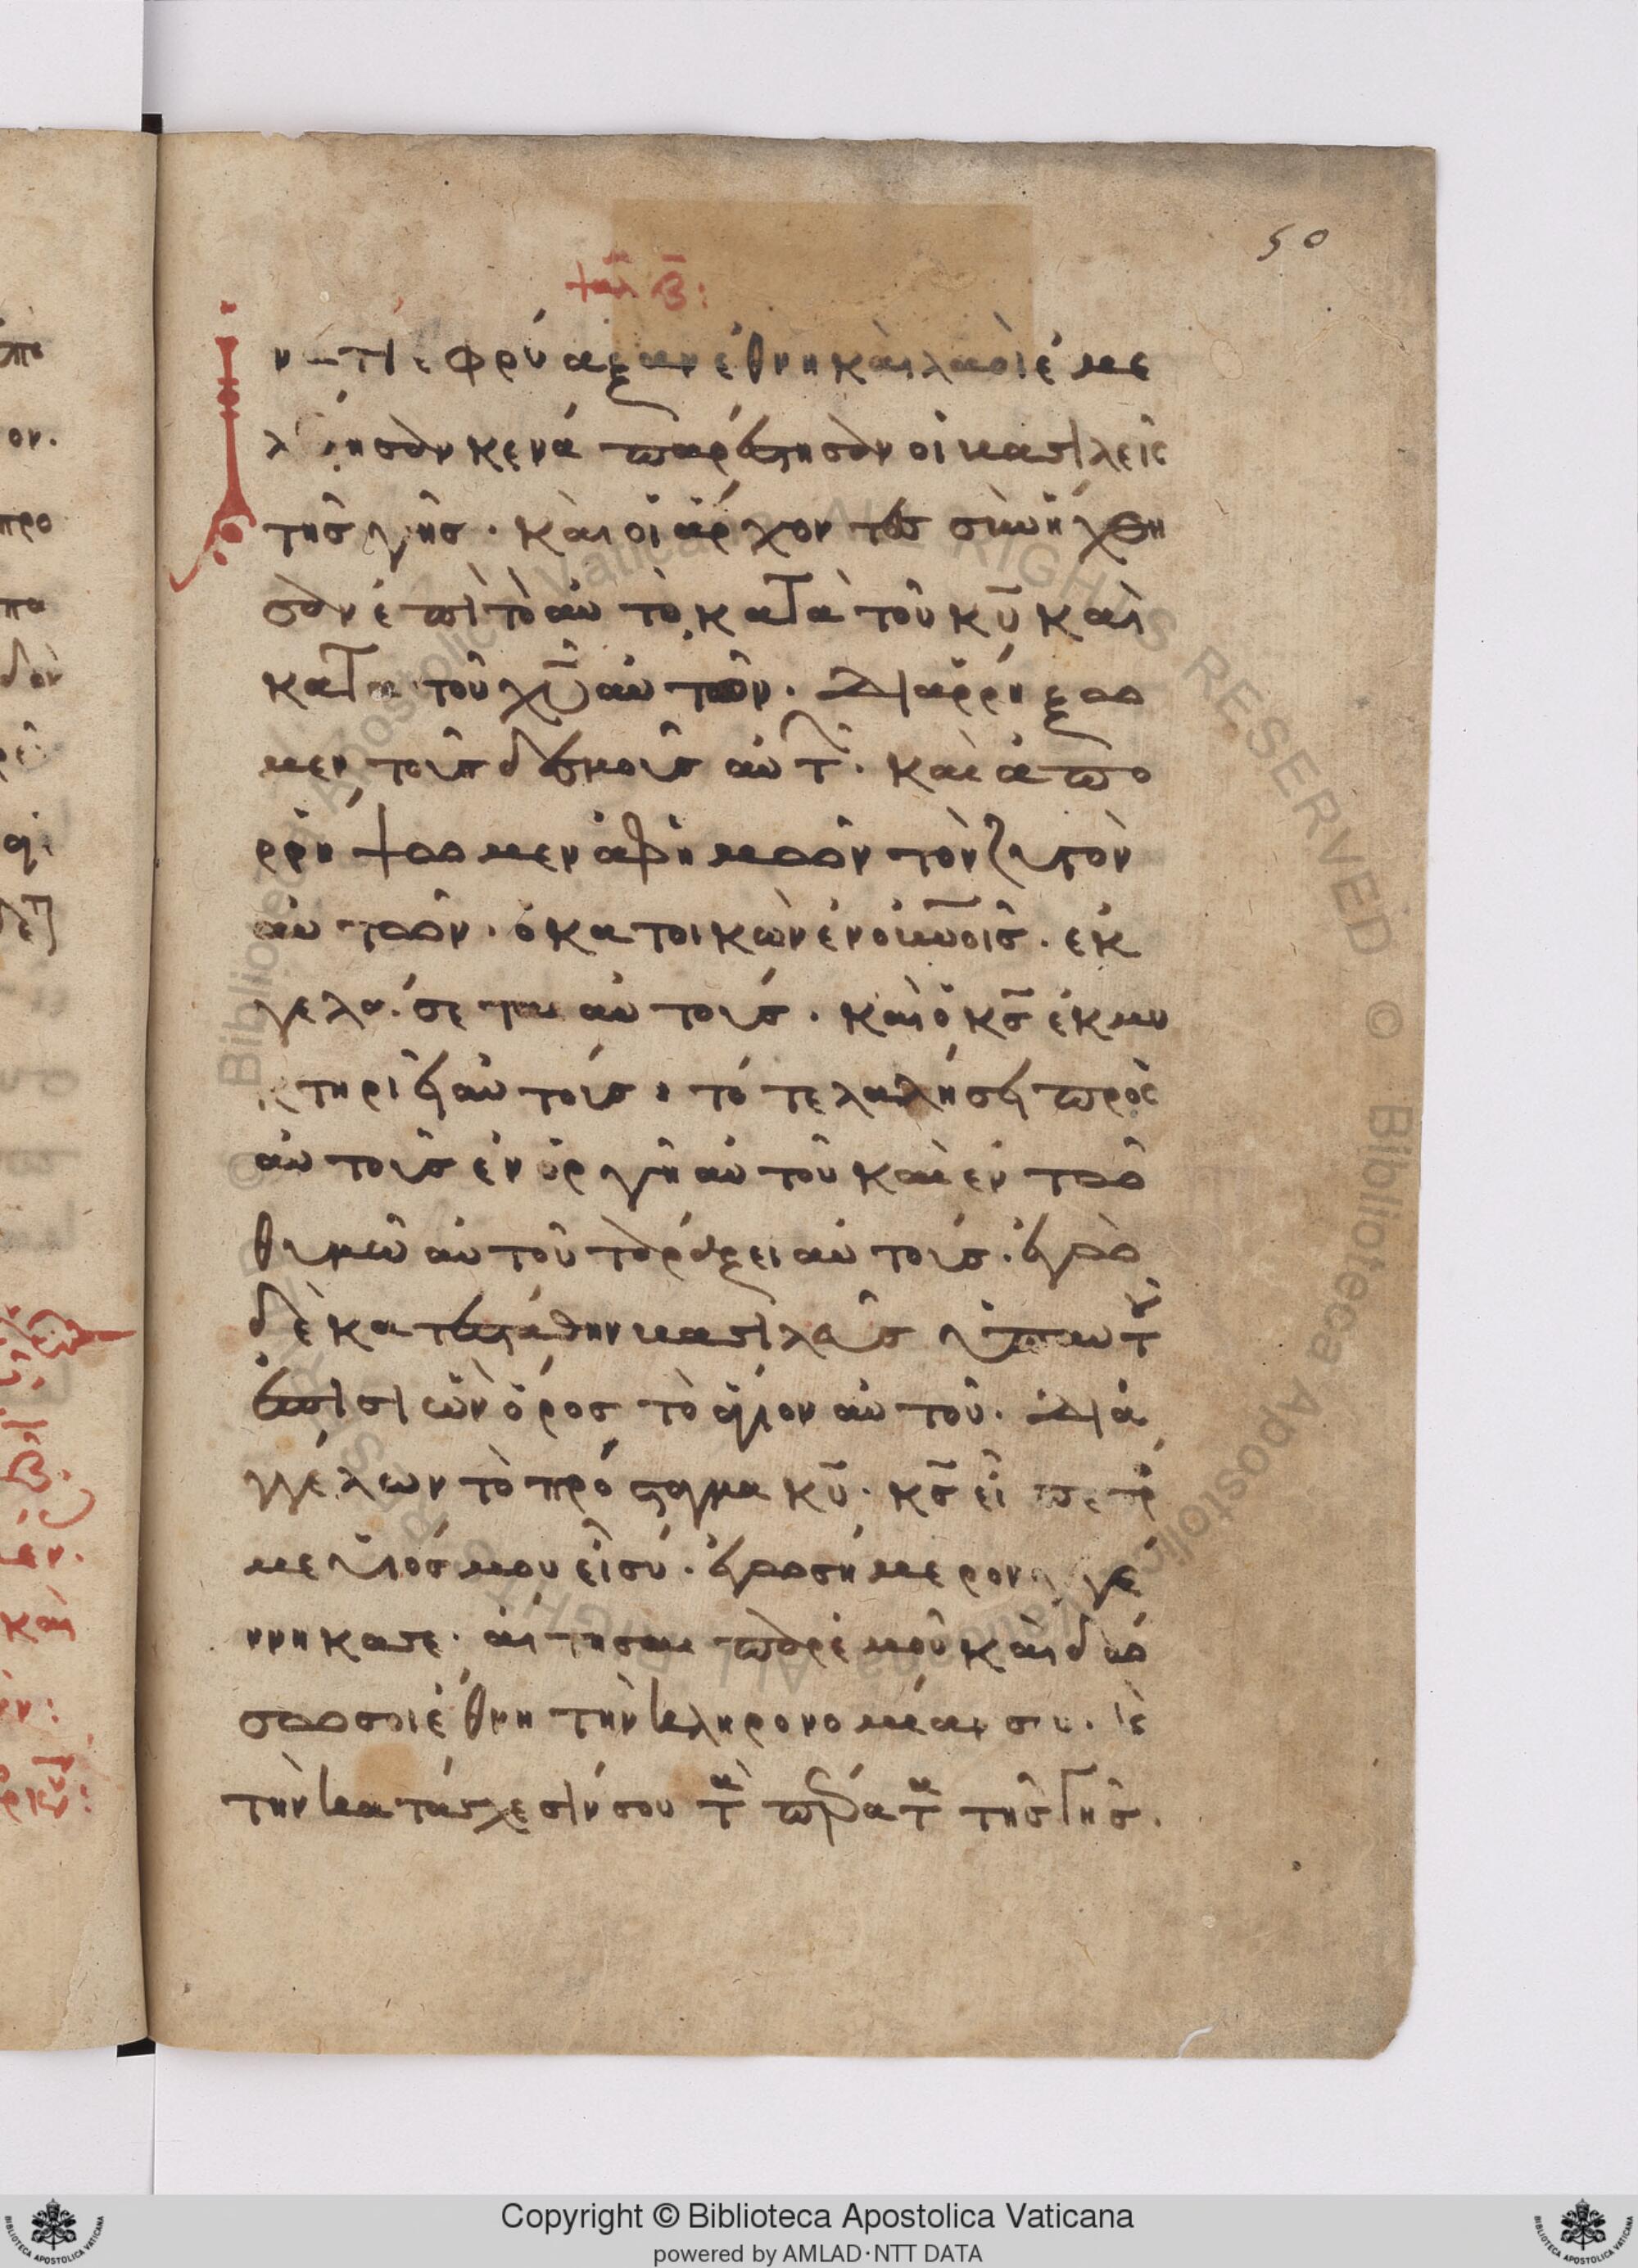 50
ψαλ β:
ἵνατί ἐφρύαξαν ἔθνη καὶ λαοὶ ἐμε
λέτησαν κενά παρέστησαν οἱ βασιλεῖς
τῆς γῆς. καὶ οἱ ἄρχοντες συνήχθη
σαν ἐπὶ τὸ αὐτὸ, κατὰ τοῦ κυ καὶ
κατὰ τοῦ χυ αὐτοῦ. διαρρήξω
μεν τοὺς δεσμοὺς αὐτ. καὶ ἀπο
ρρήψωμεν ἀφ' ἡμῶν τὸν ζυγὸν
αὐτῶν. ὁ κατοικῶν ἐν οὐνοῖς. ἐκ
γελάσεται αὐτούς. καὶ ὁ κς ἐκμυ
κτηριεῖ αὐτούς. τότε λαλήσει πρὸς
αὐτοὺς ἐν ὀργῇ αὐτοῦ καὶ ἐν τῶ
θυμῶ αὐτοῦ ταράξει αὐτούς. ἐγὼ
δὲ κατεστάθην βασιλεὺς ὑπ' αὐτ
ἐπὶ σιὼν ὄρος τὸ ἅγιον αὐτοῦ. διαγ
γέλων τὸ πρόσταγμα κυ. κς εἶπε πρ
με υἱός μου εἶ σύ. ἐγὼ σήμερον γεγέ
ννηκά σε. αἴτησαι παρ' ἐμοῦ καὶ δώ
σω σοι ἔθνη τὴν κληρονομίαν σου. κ
τὴν κατάσχεσίν σου τα πέρατα τῆς γῆς.
Copyright © Biblioteca Apostolica Vaticana
powered by AMLAD·NTT DATA